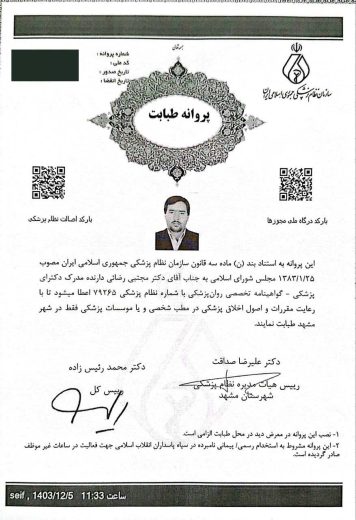 بسمه تعالی
سازمان نظام پزشکی جمهوری اسلامی ایران
شماره پروانه :
کد ملی :
تاریخ صدور :
تاریخ انقضا :
پروانه طبابت
بارکد درگاه ملی مجوزها
بارکد اصالت نظام پزشکی
این پروانه به استناد بند (ن) ماده سه قانون سازمان نظام پزشکی جمهوری اسلامی ایران مصوب
۱۳۸۳/۱/۲۵ مجلس شورای اسلامی به جناب آقای دکتر مجتبی رضائی دارنده مدرک دکترای
پزشکی - گواهینامه تخصصی روان‌پزشکی با شماره نظام پزشکی ۷۹۲۶۵ اعطا میشود تا با
رعایت مقررات و اصول اخلاق پزشکی در مطب شخصی و یا موسسات پزشکی فقط در شهر
مشهد طبابت نمایند.
دکتر علیرضا صداقت
رییس هیات مدیره نظام پزشکی
شهرستان مشهد
دکتر محمد رئیس زاده
رییس کل
۱- نصب این پروانه در معرض دید در محل طبابت الزامی است.
۲- این پروانه مشروط به استخدام رسمی/ پیمانی نامبرده در سپاه پاسداران انقلاب اسلامی جهت فعالیت در ساعات غیر موظف
صادر گردیده است.
ساعت 11:33 1403/12/5 , seif